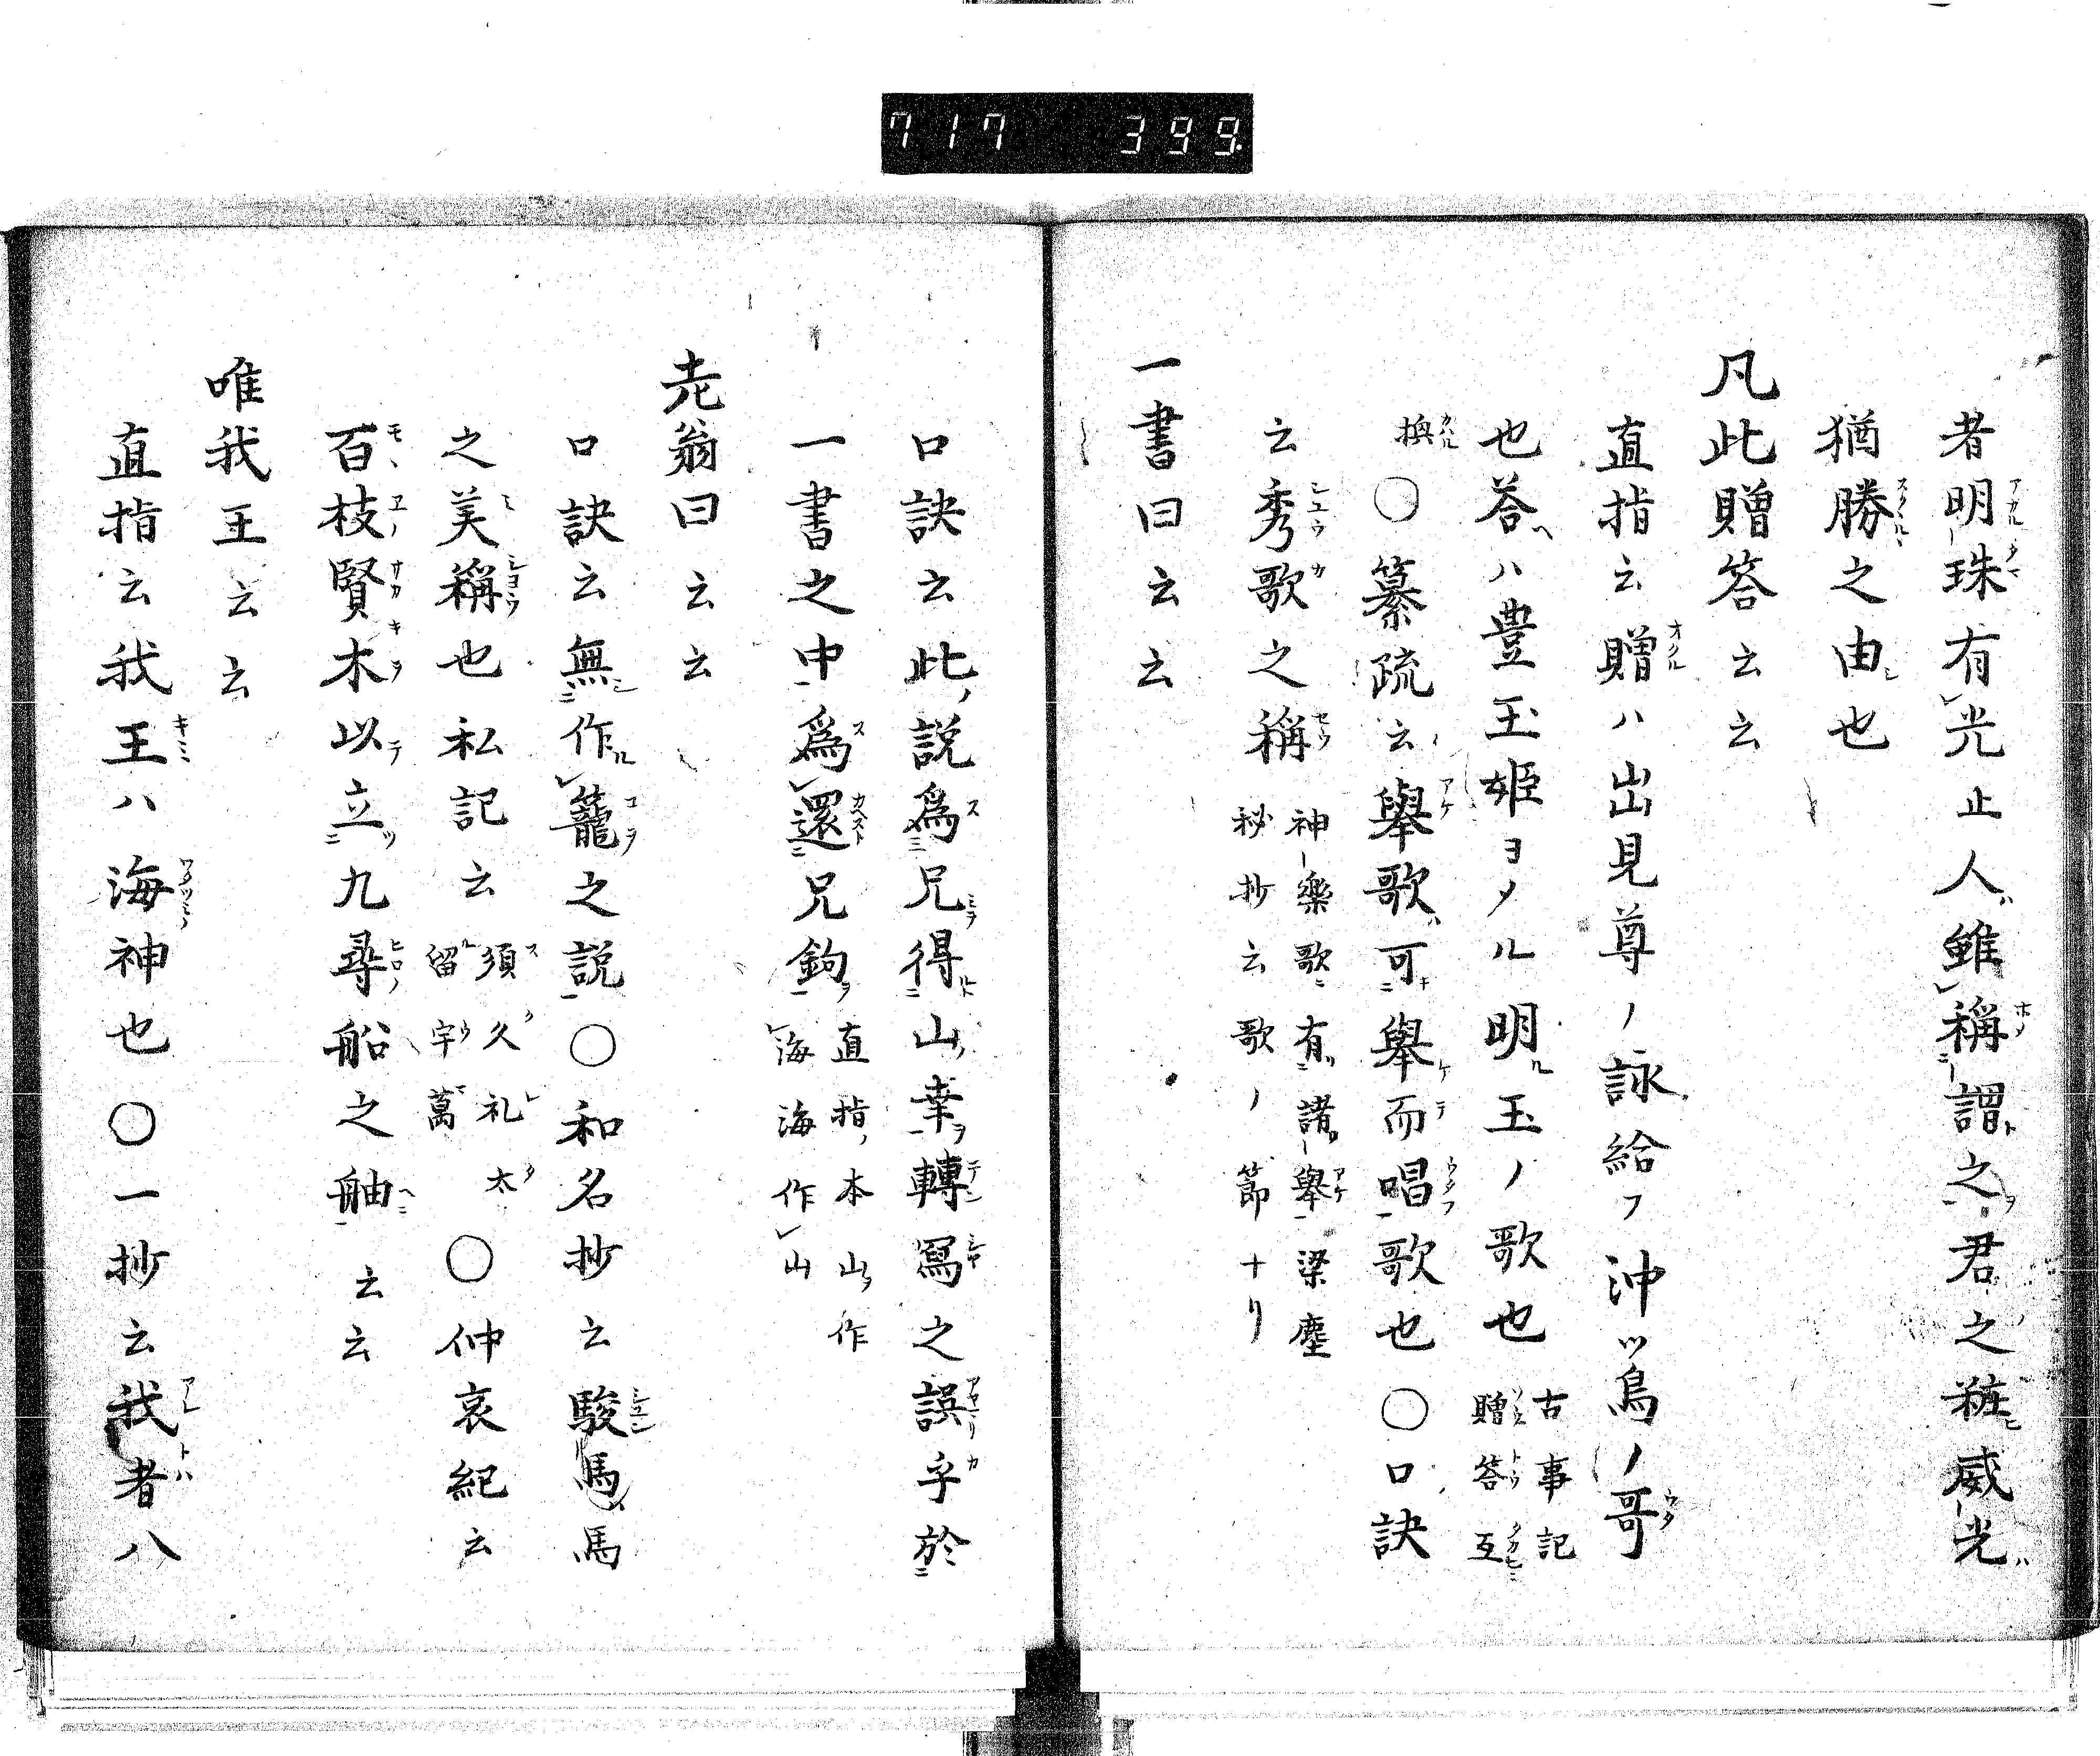 717 399
者明珠有光止人雖稱謂之君之粧威光
猶勝之由也
凡此贈答云云
直指云贈ハ出見尊ノ詠給フ沖ツ鳥ノ哥
也答ハ豊玉姫ヨメル明玉ノ歌也 古事記
贈答互
換〇纂疏云擧歌可擧而唱歌也〇口訣
云秀歌之稱 神樂歌有諸擧梁塵
秘抄云歌ノ節ナリ
一書曰云云
口訣云此説爲兄得山幸轉寫之誤乎於
一書之中爲還兄鉤 直指本山作
海海作山
老翁曰云云
口訣云無作籠之説〇和名抄云駿馬馬
之美稱也私記云 須久礼太
留宇萬 〇仲哀紀云
百枝賢木以立九尋船之舳云云
唯我王云云
直指云我王ハ海神也〇一抄云我者八